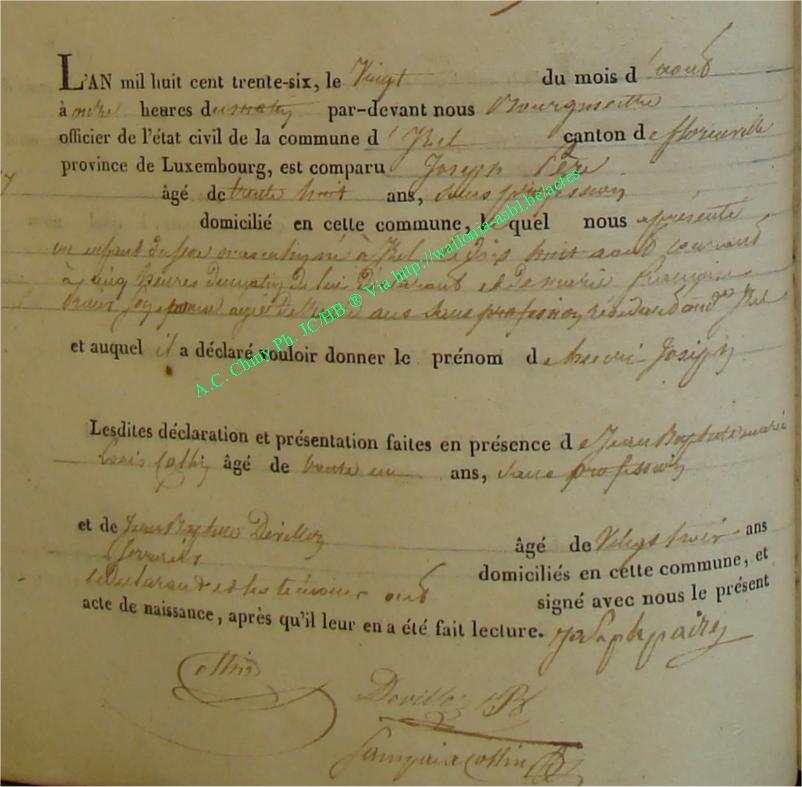 L'AN mil huit cent trente-six, le Vingt du mois d'août
à onze heures du matin par-devant nous Bourgmestre
officier de l'état civil de la commune d'Izel canton de florenville
province de Luxembourg, est comparu Joseph
âgé de trente huit ans, sans profession
domicilié en cette commune, lequel nous a présenté
un enfant du sexe masculin né à Izel le dix huit août courant
à cinq heures du matin de lui déclarant et de marie françoise
ans sans profession résidant Izel
et auquel il a déclaré vouloir donner le prénom de henri Joseph
Lesdites déclaration et présentation faites en présence de Jean Baptiste marie
Louis Collin âgé de trente un ans, sans profession
et de Jean Baptiste Devillez âgé de Vingt trois ans
serrurier domiciliés en cette commune, et
le déclarant et les témoins ont signé avec nous le présent
acte de naissance, après qu'il leur en a été fait lecture.
Joseph pairé
Collin
Devillez JB
Collin
A.C. Chiny Ph. JC/HB ® Via http://wallonia-asbl.be/actes